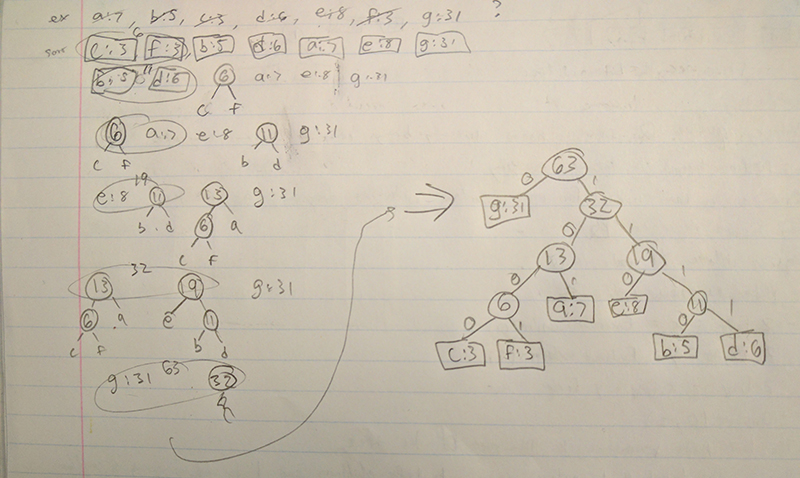 ex a:7, b:5, c:3, d:6, e:8, f:3, g:31 ?
6
sort c:3 f:3, b:5 d:6 a:7 e:8 g:31
11
b:5 d:6 6 a:7 e:8 g:31
c f
6 a:7 e:8 11 g:31
c f b d
19
e:8 11 13 g:31
b d 6 a
c f
32
13 19 g:31
6 a e 11
c f b d
g:31 63 32
63
0 1
g:31 32
0 1
13 19
0 1 0 1
6 a:7 e:8 11
0 1 0 1
c:3 f:3 b:5 d:6